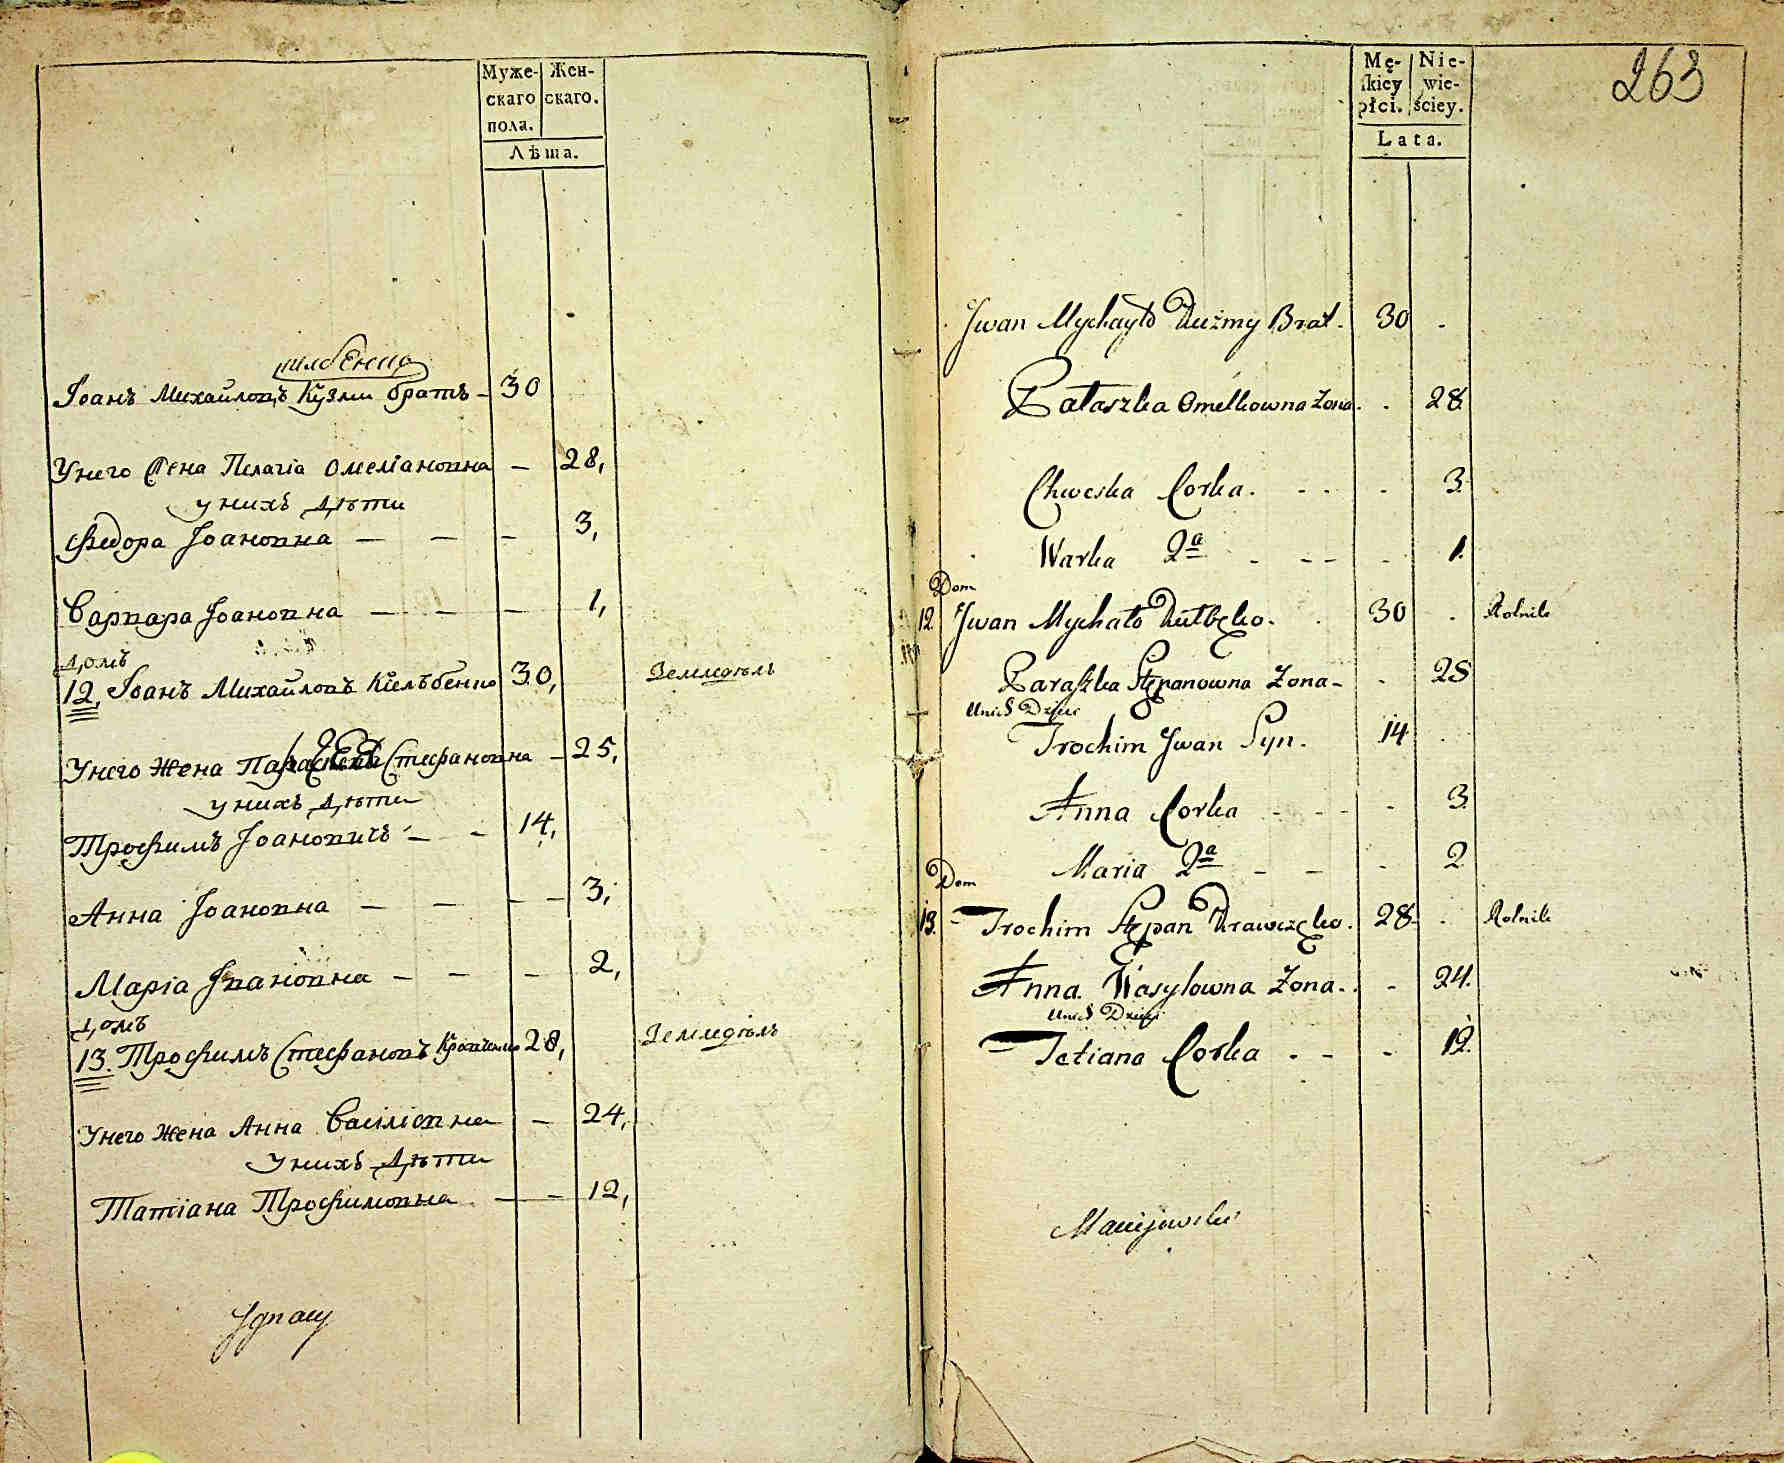 Муже- Жен-
скаго скаго.
пола.
Лѣта.
Іоанъ Михайловъ Кузми братъ - 30
Унего жена Пелагіа Омеліановна - 28,
у нихъ дѣти
Федора Іоановна - - - 3,
Варвара Іоановна - - - 1,
домъ
12, Іоанъ Михайловъ Кулъбенко 30, Земледѣлъ
Унего жена Параскева Стефановна - 25,
у нихъ дѣти
Трофимъ Іоановичъ - - 14,
Анна Іоановна - - - - 3,
Маріа Іванювна - - - 2,
домъ
13. Трофимъ Стефановъ Кравченко 28, Земледѣлъ
Унего жена Анна Василіовна - 24,
У нихъ Дѣти
Татіана Трофимовна - - 12,
Ignacy
263
Mę- Nie-
skiey wie-
płci. ściey.
Lata.
Jwan Mychayło Kuźmy Brat. 30 .
Pałaszka Omelkowna Zona. . 28.
Chweska Corka. - - - 3.
Warka 2a - - - - 1.
Dom
12. Jwan Mychało Kulbęko. . 30 . Rolnik
Paraszka Stępanowna Zona - - 25
Unich Dzieci
Trochim Jwan Syn. 14 .
Anna Corka - - - - 3.
Maria 2a - - - 2
Dom
13. - Trochim Stępan Krawczęko. 28 . Rolnik
Anna Wasylowna Zona. . - 24.
Unich Dzieci
- Tetiana Corka . - - 12.
Maciejowski